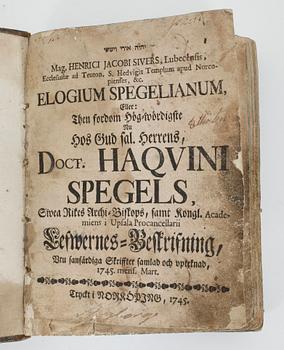 יהוה אורי וישעי
Mag. HENRICI JACOBI SIVERS, Lubecensis,
Ecclesiæ ad Teuton. S. Hedvigis Templum apud Norco-
pienses, &c.
ELOGIUM SPEGELIANUM,
Eller:
Then fordom Hög-wördigste
Nu
Hos Gud sal. Herrens,
DOCT. HAQVINI
SPEGELS,
Swea Rikes Archi-Biskops, samt Kongl. Acade-
miens i Upsala Procancellarii
Lefwernes-Beskrifning,
Utu sanfärdiga Skriffter samlad och upteknad,
1745. mens. Mart.
Tryckt i NORKÖPING, 1745.